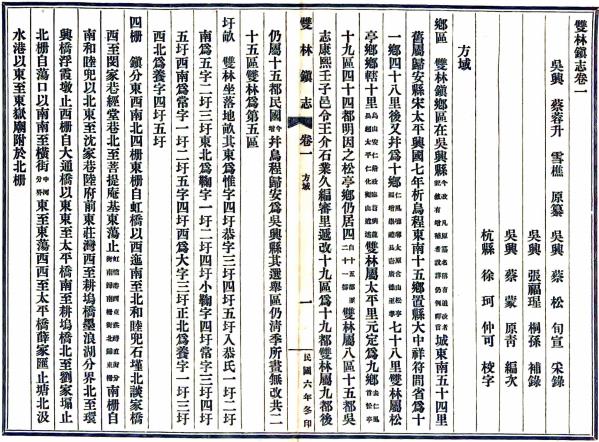 雙林鎮志卷一
吳興 蔡蓉升 雪樵 原纂 吳興 蔡 松 旬宣 采錄
吳興 張福珵 桐孫 補錄
吳興 蔡 蒙 原青 編次
杭縣 徐 珂 仲可 校字
方域
鄉區 雙林鎮鄉區在吳興縣 城東南五十四里
舊屬歸安縣宋太平興國七年析烏程東南十五鄉置縣大中祥符間省爲十
一鄉四十八里後又幷爲十鄉 七十八里雙林屬松
亭鄉鄉轄十里 雙林屬太平里元定爲九鄉
十九區四十四都明因之松亭鄉仍居四 雙林屬八區十五都吳
志康熙壬子邑令王介石業久編審里遞改十九區爲十九都雙林屬九都後
雙林鎮志 卷一 方域 一 民國六年冬印
仍屬十五都民國 幷烏程歸安爲吳興縣其選舉區仍清季所畫無改共二
十五區雙林爲第五區
圩畝 雙林坐落地畝其東爲惟字三圩四圩恭字三圩四圩五圩入恭氏一圩二圩
南爲五字二圩三圩東北爲鞠字一圩二圩四圩小鞠字四圩常字三圩四圩
五圩西南爲常字一圩二圩五字四圩西爲大字三圩正北爲養字一圩三圩
西北爲養字四圩五圩
四柵 鎮分東西南北四柵東柵自虹橋以西迤南至北和睦兜石墐北談家橋
西至閔家巷經堂巷北至菩提庵基東蕩止 南柵自
南和睦兜以北東至沈家巷陸府前東莊灣西至耕塢橋墨浪湖分界北至環
興橋浮霞墩止西柵自大通橋以東東至太平橋南至耕塢橋北至劉家堛止
北柵自蕩口以南南至橫街 東至東蕩西西至太平橋薛家匯止塘北汲
水港以東至東嶽廟附於北柵